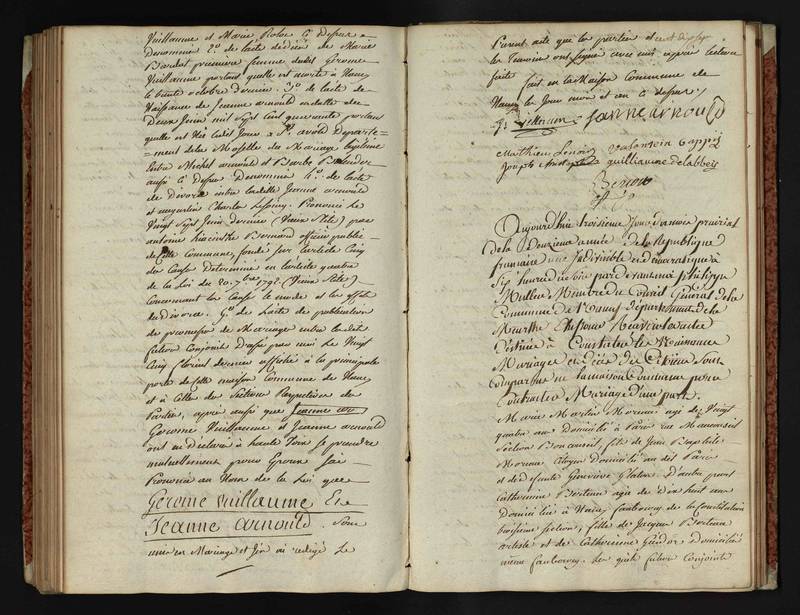 Vuillaume et Marie Rolin ci Dessus
Denommés 2.º de lacte dédécès de Marie
Bardot premiere femme dudit Gérome
Vuillaume portant quelle est morte à Nancy
le trente octobre dernier. 3.º de lacte de
Naissance de Jeanne arnould endatte du
Deux Juin mil Sept Cent quarante portant
quelle est Née ledit Jour à St. avold Departe=
=ment de la Moselle du Mariage légitime
entre Michel arnould et Barbe
aussi ci Dessus Denommés 4.º de lacte
de Divorce entre ladite Jeanne arnould
et augustin Charles Prononcé le
Vingt Sept Juin dernier (Vieux Stile) par
antoine hiacinthe Bernard officier public
de Cette Commune, fondé sur larticle Cinq
des Causes Déterminées en larticle quatre
de la Loi du 20. 7bre 1792 (Vieux Stile)
Concernant les Causes le mode et les effets
du divorce. 5.º de lacte de publication
de promesses de Mariage entre lesdits
futurs Conjoints Dressé par moi le Vingt
Cinq floréal dernier affiché à la principale
porte de Cette maison Commune de Nancy
et à Celles des Sections Respectives des
Parties, après aussi que Jeanne
Gerome Vuillaume et Jeanne arnould
ont eu déclaré à haute Voix se prendre
mutuellement pour Epoux Jai
Prononcé au Nom de la Loi que
Gérome Vuillaume Et
Jeanne arnould. Sont
unis en Mariage et Jen ai redigé le
Present acte que les parties et
les Temoins ont signé avec moi après lecture
faite fait en la Maison Commune de
Nancy les Jour mois et an ci dessus.
Janne arnould
Mathieu Lenoir
Joseph guilliaume delabbeÿ
off. p.
Aujourd'hui troisieme Jour du mois prairial
de la Deuzieme année de la Republique
francaise une et indivisible en democratique à
Sept heures du soir par devant moi philippe
Mulleur Membre du Conseil Général de la
Commune de Nancy département de la
Meurthe
Destinés à Constater les Naissances
Mariages et Décès des Citoiens Sont
Comparus en la maison Commune pour
Contracter Mariage d'une part.
Marie Martin Moreau agé de Vingt
quatre ans Domicilié à Paris rue Mauconseil
Section Bonconseil, fils de Jean Baptiste
Moreau Citoyen Domicilié au dit Paris
et de défunte Geneviève D'autre part
Catherinne Berteau agée de dix huit ans
Domiciliée à Nancy faubourg de la Constitution
troisieme Section, fille de Jacques Berteau
artiste et de Catherinne Domiciliés
même faubourg. les quels futurs Conjoints